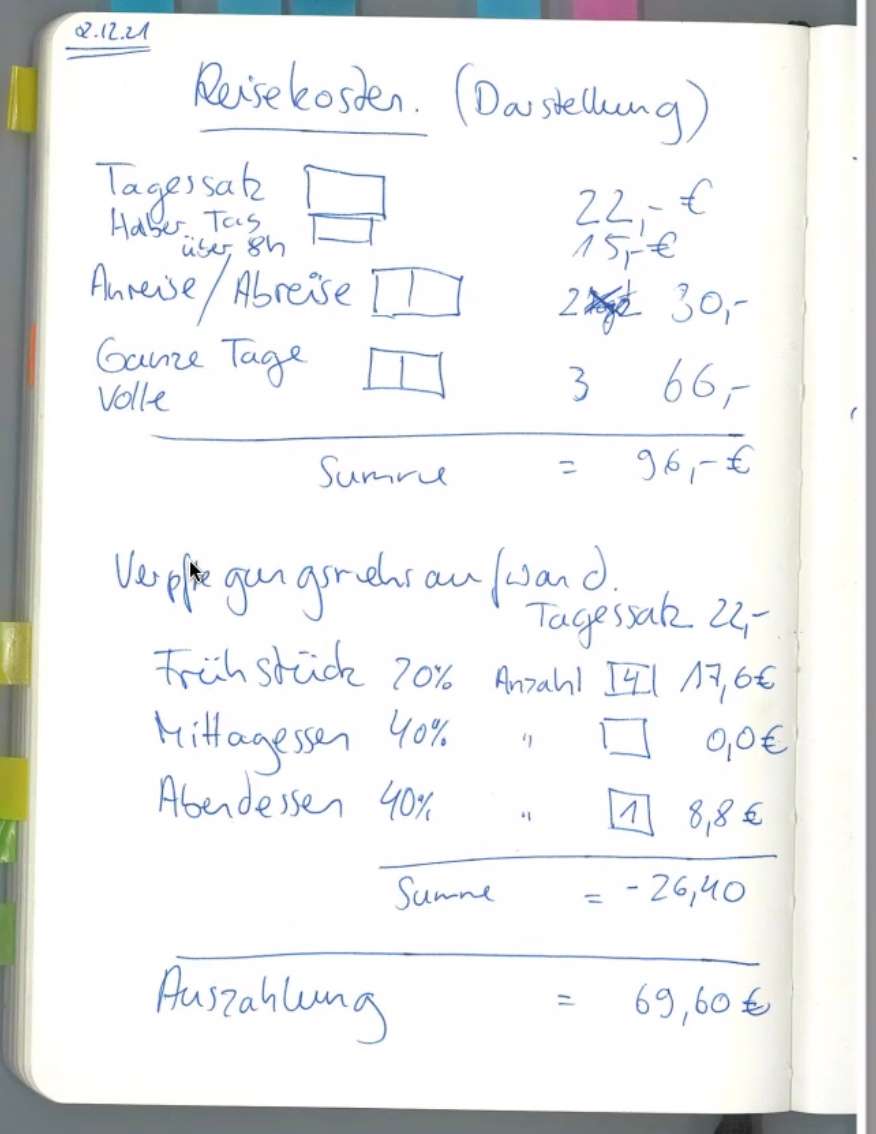 2.12.21
Reisekosten. (Darstellung)
Tagessatz 22,- €
Halber Tag 15,- €
über 8h
Anreise/Abreise 2 30,-
Ganze Tage 3 66,-
Volle
Summe = 96,- €
Verpflegungsmehraufwand.
Tagessatz 22,-
Frühstück 20% Anzahl 4 17,6€
Mittagessen 40% " 0,0€
Abendessen 40% " 1 8,8€
Summe = -26,40
Auszahlung = 69,60€